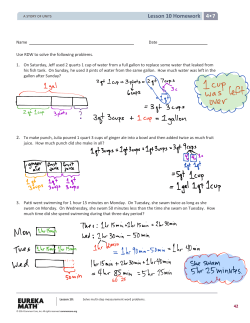 A STORY OF UNITS
Lesson 10 Homework
4•7
Name
Date
Use RDW to solve the following problems.
1. On Saturday, Jeff used 2 quarts 1 cup of water from a full gallon to replace some water that leaked from
his fish tank. On Sunday, he used 3 pints of water from the same gallon. How much water was left in the
gallon after Sunday?
1 gal
1 cup
was left
over
3pt 3cups + 1cup = 1 gallon
2. To make punch, Julia poured 1 quart 3 cups of ginger ale into a bowl and then added twice as much fruit
juice. How much punch did she make in all?
ginger
ale
fruit
juice
fruit
juice
1qt
3cups
1qt
3cups
1qt
3cups
5qt 1cup
3. Patti went swimming for 1 hour 15 minutes on Monday. On Tuesday, she swam twice as long as she
swam on Monday. On Wednesday, she swam 50 minutes less than the time she swam on Tuesday. How
much time did the spend swimming during that three day period?
Mon
Tues
Wed
50min
Tues: 1hr 15min + 1hr 15min = 2hr 30min
Wed: 2hr 30min - 50min
= 1hr 90min - 50min = 1hr 40min
1hr 15min + 2hr 30min + 1hr 40min
= 4hr 85min = 5hr 25min
She swam
5hr 25minutes
EUREKA
MATH
Lesson 10:
Solve multi-step measurement word problems.
42